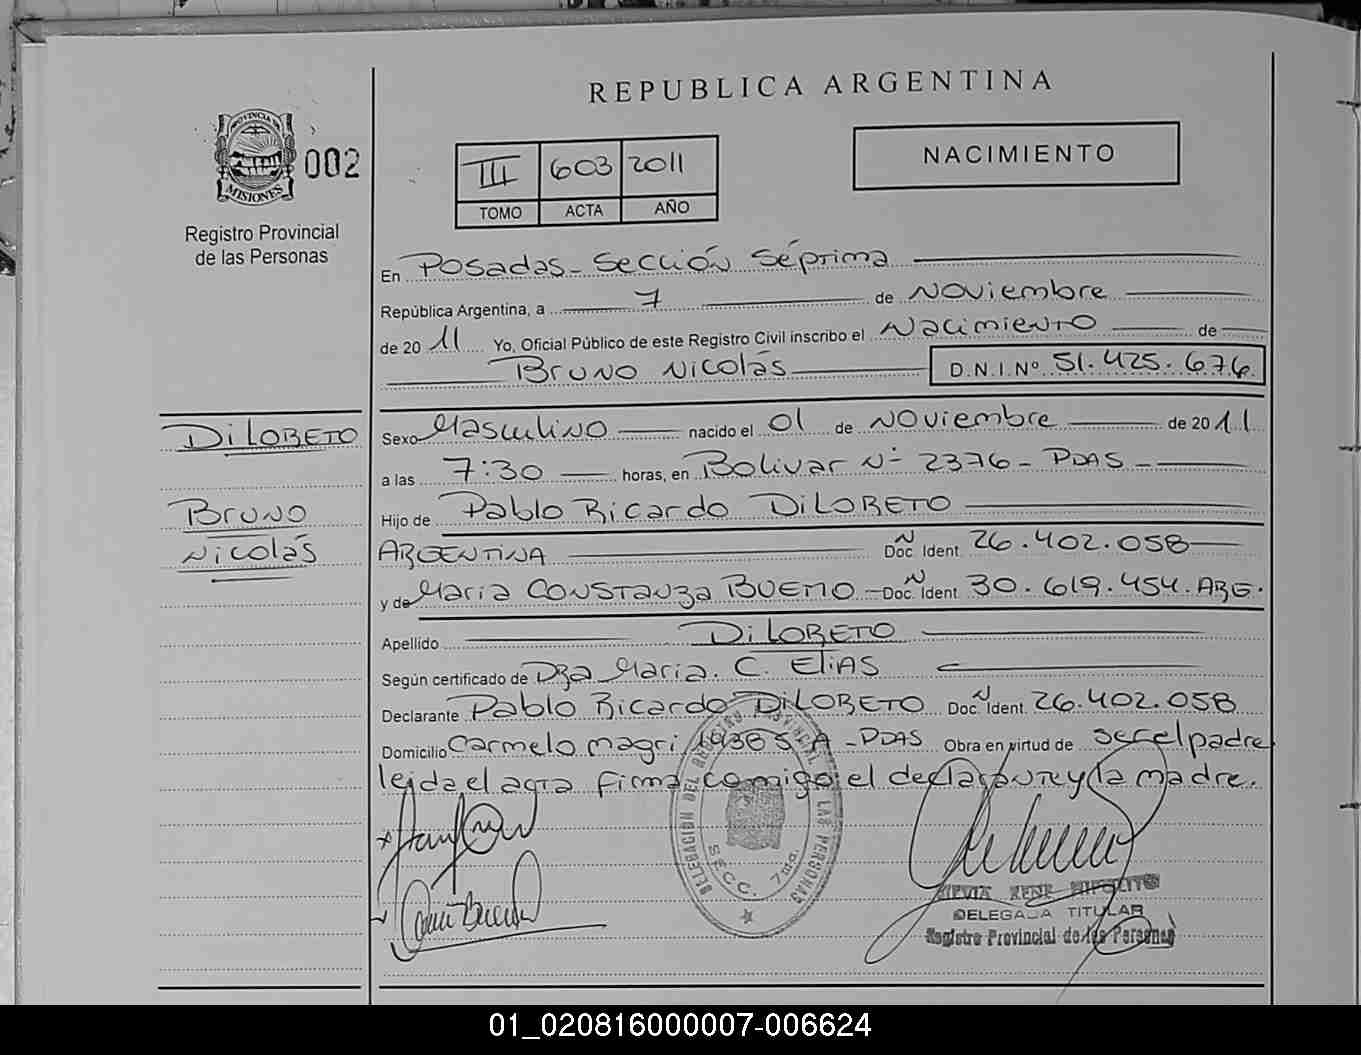 REPUBLICA ARGENTINA
PROVINCIA DE
MISIONES
002
Registro Provincial
de las Personas
III 603 2011
TOMO ACTA AÑO
NACIMIENTO
En Posadas - Sección Séptima
República Argentina, a 7 de Noviembre
de 2011 Yo, Oficial Público de este Registro Civil inscribo el Nacimiento de
Bruno Nicolás D.N.I.Nº 51.425.676
Di LORETO
Sexo Masculino nacido el 01 de Noviembre de 2011
a las 7:30 horas, en Bolivar Nº 2376 - PDAS -
Bruno
Nicolás
Hijo de Pablo Ricardo Di LORETO
ARGENTINA Doc. Ident. 26.402.058
y de Maria CONSTANZA BUENO - Doc. Ident. 30.619.454. ARG.
Apellido Di LORETO
Según certificado de Dra Maria. C. ELIAS
Declarante Pablo Ricardo Di LORETO Doc. Ident. 26.402.058
Domicilio Carmelo magri - PDAS Obra en virtud de ser el padre
leida el acta firma comigo el declarante y la madre.
DELEGACIÓN DEL REGISTRO PROVINCIAL DE LAS PERSONAS
SECC. 7ma.
RENE HIPOLITO
DELEGADA TITULAR
Registro Provincial de las Personas
01_020816000007-006624